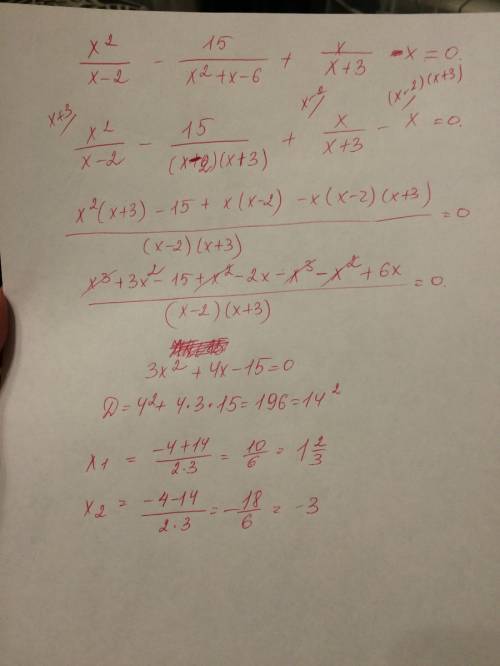 x²/(x-2) - 15/(x²+x-6) + x/(x+3) - x = 0.
x+3/ x²/(x-2) - 15/((x-2)(x+3)) + x-2/ x/(x+3) - (x-2)(x+3)/ x = 0.
(x²(x+3) - 15 + x(x-2) - x(x-2)(x+3))/((x-2)(x+3)) = 0
(x³+3x²-15+x²-2x-x³-x²+6x)/((x-2)(x+3)) = 0.
3x²+4x-15=0
D=4²+4·3·15=196=14²
x₁ = (-4+14)/(2·3) = 10/6 = 1 2/3
x₂ = (-4-14)/(2·3) = -18/6 = -3